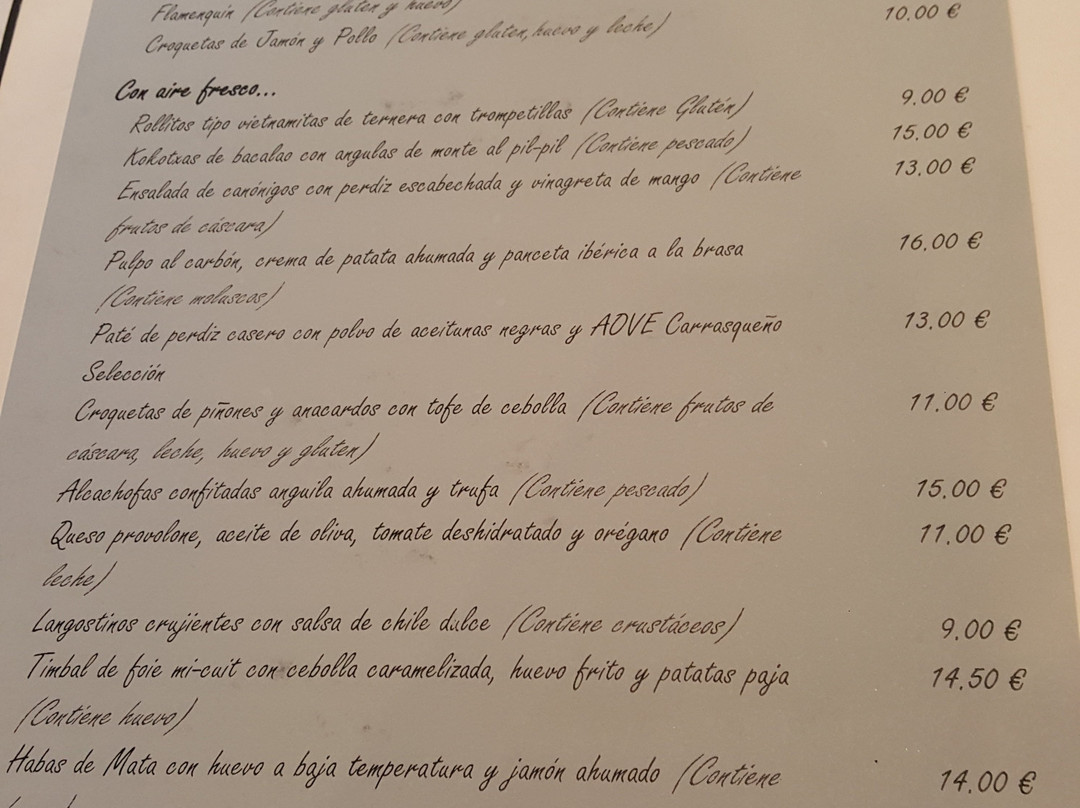 Flamenquín (Contiene gluten y huevo) 10,00 €
Croquetas de Jamón y Pollo (Contiene gluten, huevo y leche)
Con aire fresco...
Rollitos tipo vietnamitas de ternera con trompetillas (Contiene Glutén) 9,00 €
Kokotxas de bacalao con angulas de monte al pil-pil (Contiene pescado) 15,00 €
Ensalada de canónigos con perdiz escabechada y vinagreta de mango (Contiene 13,00 €
frutos de cáscara)
Pulpo al carbón, crema de patata ahumada y panceta ibérica a la brasa 16,00 €
(Contiene moluscos)
Paté de perdiz casero con polvo de aceitunas negras y AOVE Carrasqueño 13,00 €
Selección
Croquetas de piñones y anacardos con tofe de cebolla (Contiene frutos de 11,00 €
cáscara, leche, huevo y gluten)
Alcachofas confitadas anguila ahumada y trufa (Contiene pescado) 15,00 €
Queso provolone, aceite de oliva, tomate deshidratado y orégano (Contiene 11,00 €
leche)
Langostinos crujientes con salsa de chile dulce (Contiene crustáceos) 9,00 €
Timbal de foie mi-cuit con cebolla caramelizada, huevo frito y patatas paja 14,50 €
(Contiene huevo)
Habas de Mata con huevo a baja temperatura y jamón ahumado (Contiene 14,00 €